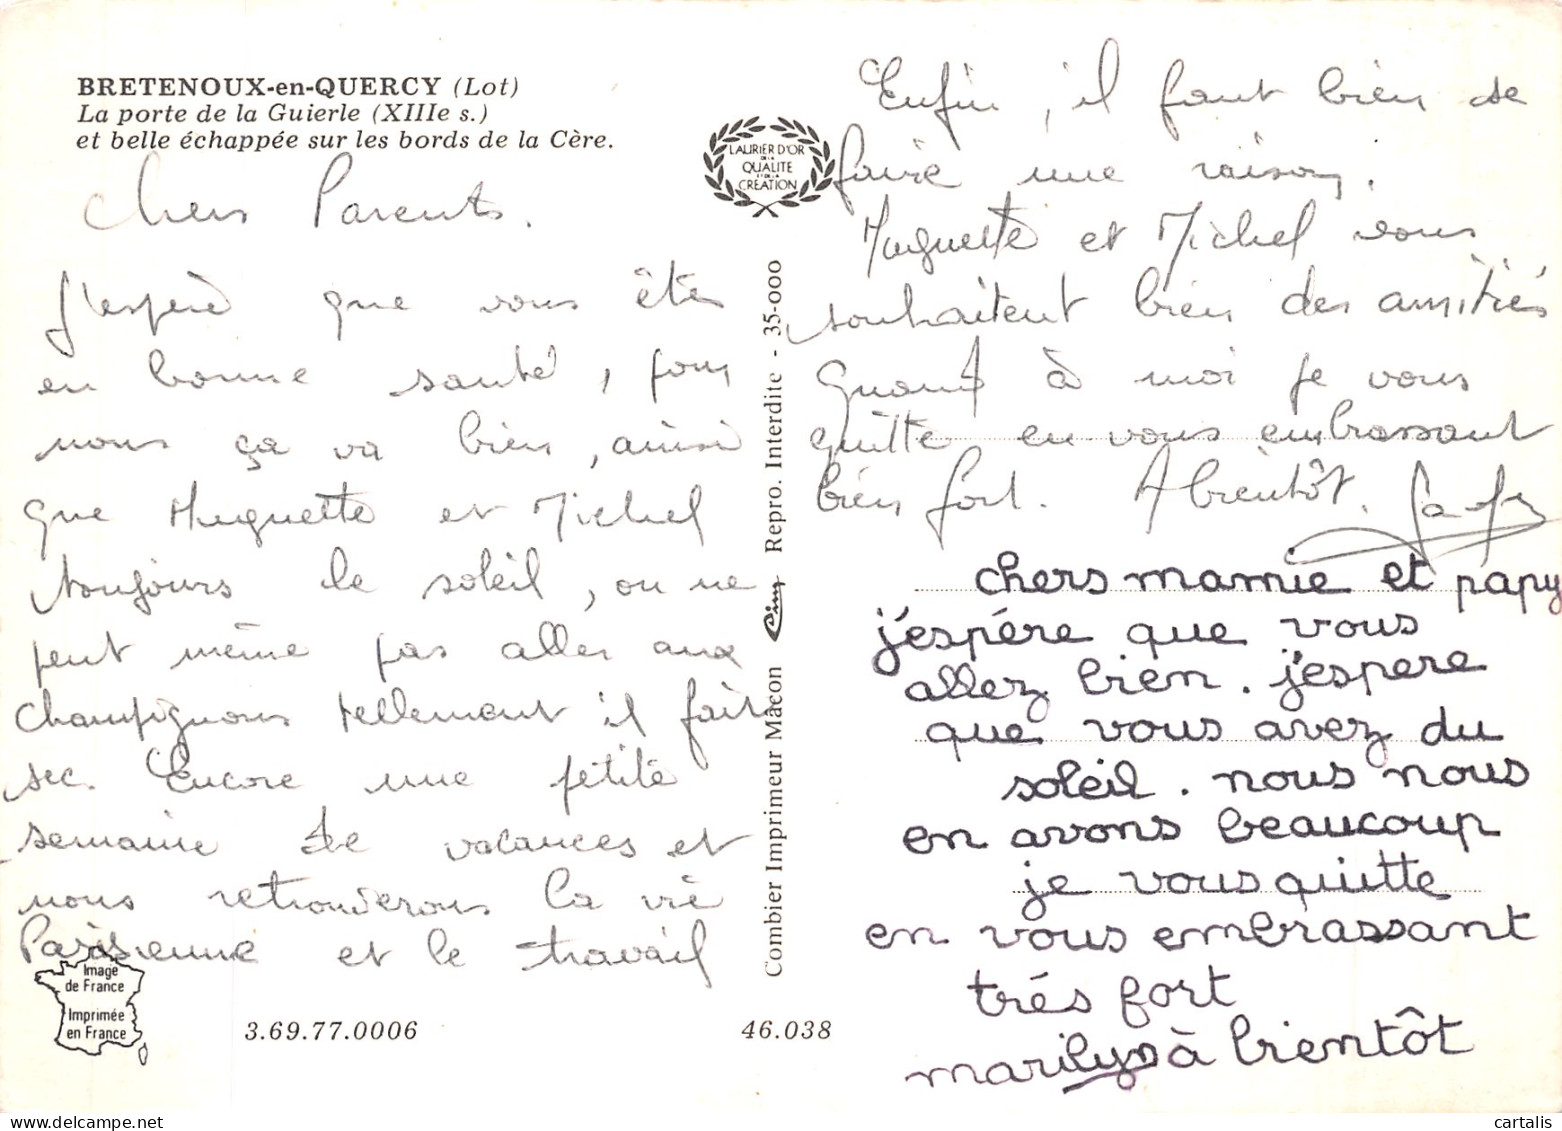 BRETENOUX-en-QUERCY (Lot)
La porte de la Guierle (XIIIe s.)
et belle échappée sur les bords de la Cère.
Chers Parents.
J'espère que vous êtes
en bonne santé, pour
nous ça va bien, ainsi
que Huguette et Michel
toujours le soleil, on ne
peut même pas aller aux
champignons tellement il fait
sec. Encore une petite
semaine de vacances et
nous retrouverons la vie
Parisienne et le travail
Image
de France
Imprimée
en France
3.69.77.0006
46.038
LAURIER D'OR
DE LA
QUALITE
ET DE LA
CREATION
Combier Imprimeur Mâcon Cim Repro. Interdite - 35-000
Enfin, il faut bien se
faire une raison.
Huguette et Michel vous
souhaitent bien des amitiés
Quand à moi je vous
quitte en vous embrassant
bien fort. A bientôt.
chers mamie et papy
j'espére que vous
allez bien. j'espere
que vous avez du
soleil. nous nous
en avons beaucoup
je vous quitte
en vous embrassant
trés fort
marilys à bientôt
cartalis